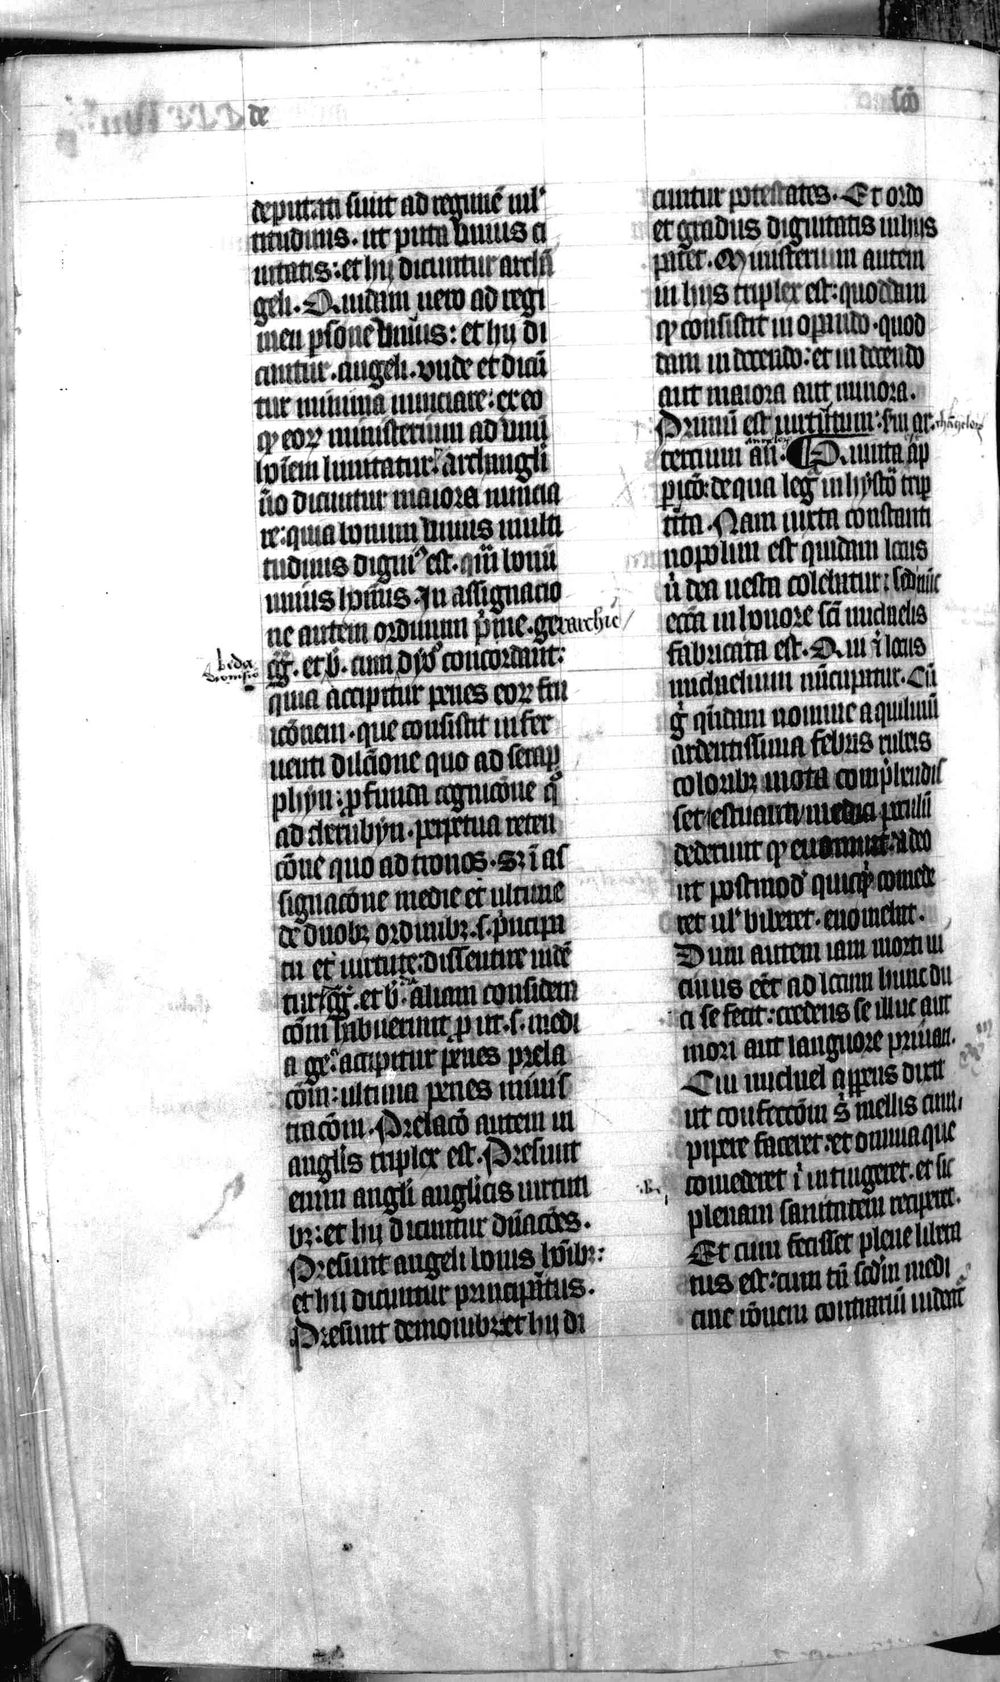 de
sco
deputati sunt ad regimē ml'
titudinis. ut puta huius ci
uitatis: et hij dicuntur archā
geli. Quidam uero ad regi
men psone unius: et hij di
cuntur. angeli. unde et dicū
tur minima nunciare: ex eo
qꝫ eorꝫ ministerium ad unū
hoīem limitatur. archāngeli
ūo dicuntur maiora nuncia
re: quia bonum unius multi
tudinis digni' est. quā bonū
unius hoīis. In assignacio
ne autem ordinum prime. gerarchie
beda
dionisio
gg. et b. cum dyo concordant:
quia accipitur penes eorꝫ fru
icōnem. que consistit in fer
uenti dilcōione quo ad serap
phyn: profunda cognicōne q°
ad cherubyn. perpetua reten
cōne quo ad tronos. Sꝫ ī as
signacōne medie et ultime
de duobꝫ ordinibꝫ. s. principa
tu et uirtute: dissentire uidē
tur. gg. et b. aliam considera
cōm habuerunt put. s. medi
a ge. accipitur penes prela
cōm: ultima penes minis
tracōm. Prelacō autem in
anglis triplex est. Presunt
enim angli anglicis uirtuti
bꝫ: et hij dicuntur dnācōes.
Presunt angeli bonis hoībꝫ:
et hij dicuntur principatus.
Presunt demonibꝫ: et hij di
cuntur potestates. Et ordo
et gradus dignitatis in hijs
patet. Ministerium autem
in hijs triplex est: quoddam
qꝫ consistit in operando. quod
dam in docendo: et in docendo
aut maiora aut minora.
Primū est uirtutum: sm ar
changelorꝫ
tercium an. angelorꝫ Quinta ap
paricō: de qua legr in hystō trip
tita. Nam iuxta constanti
nopolim est quidam locus
ū dea uesta colebatur: sed nūc
eccā in honore sci michaelis
fabricata est. Qui ī locus
michaelium nūcupatur. Cū
g quidam nomine aquilinū
ardentissima febris rubeis
coloribꝫ mota comprehendis
set: estuanti medici poculū
dederunt qꝫ euomuit. adeo
ut postmod' quicqꝫ comede
ret ul' biberet. euomebat.
Dum autem iam morti ui
cinus eēt ad locum hunc du
ci se fecit: credens se illuc aut
mori aut languore priuari.
Cui michael apparens dixit
ut confeccōm s mellis cum
pipere faceret: et omnia que
comederet ī intingeret. et sic
plenam sanitatem reciperet.
Et cum fecisset plene libera
tus est: cum tn scdm medi
cine rōnem contrariū uideat